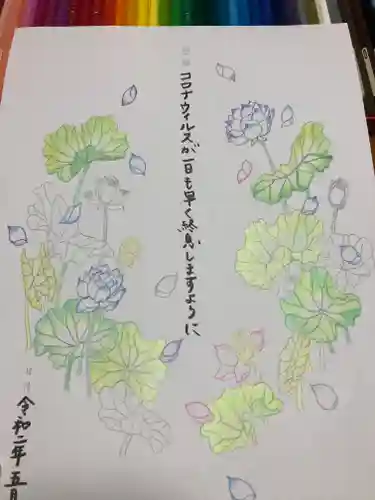 コロナウィルスが一日も早く終息しますように
令和二年五月